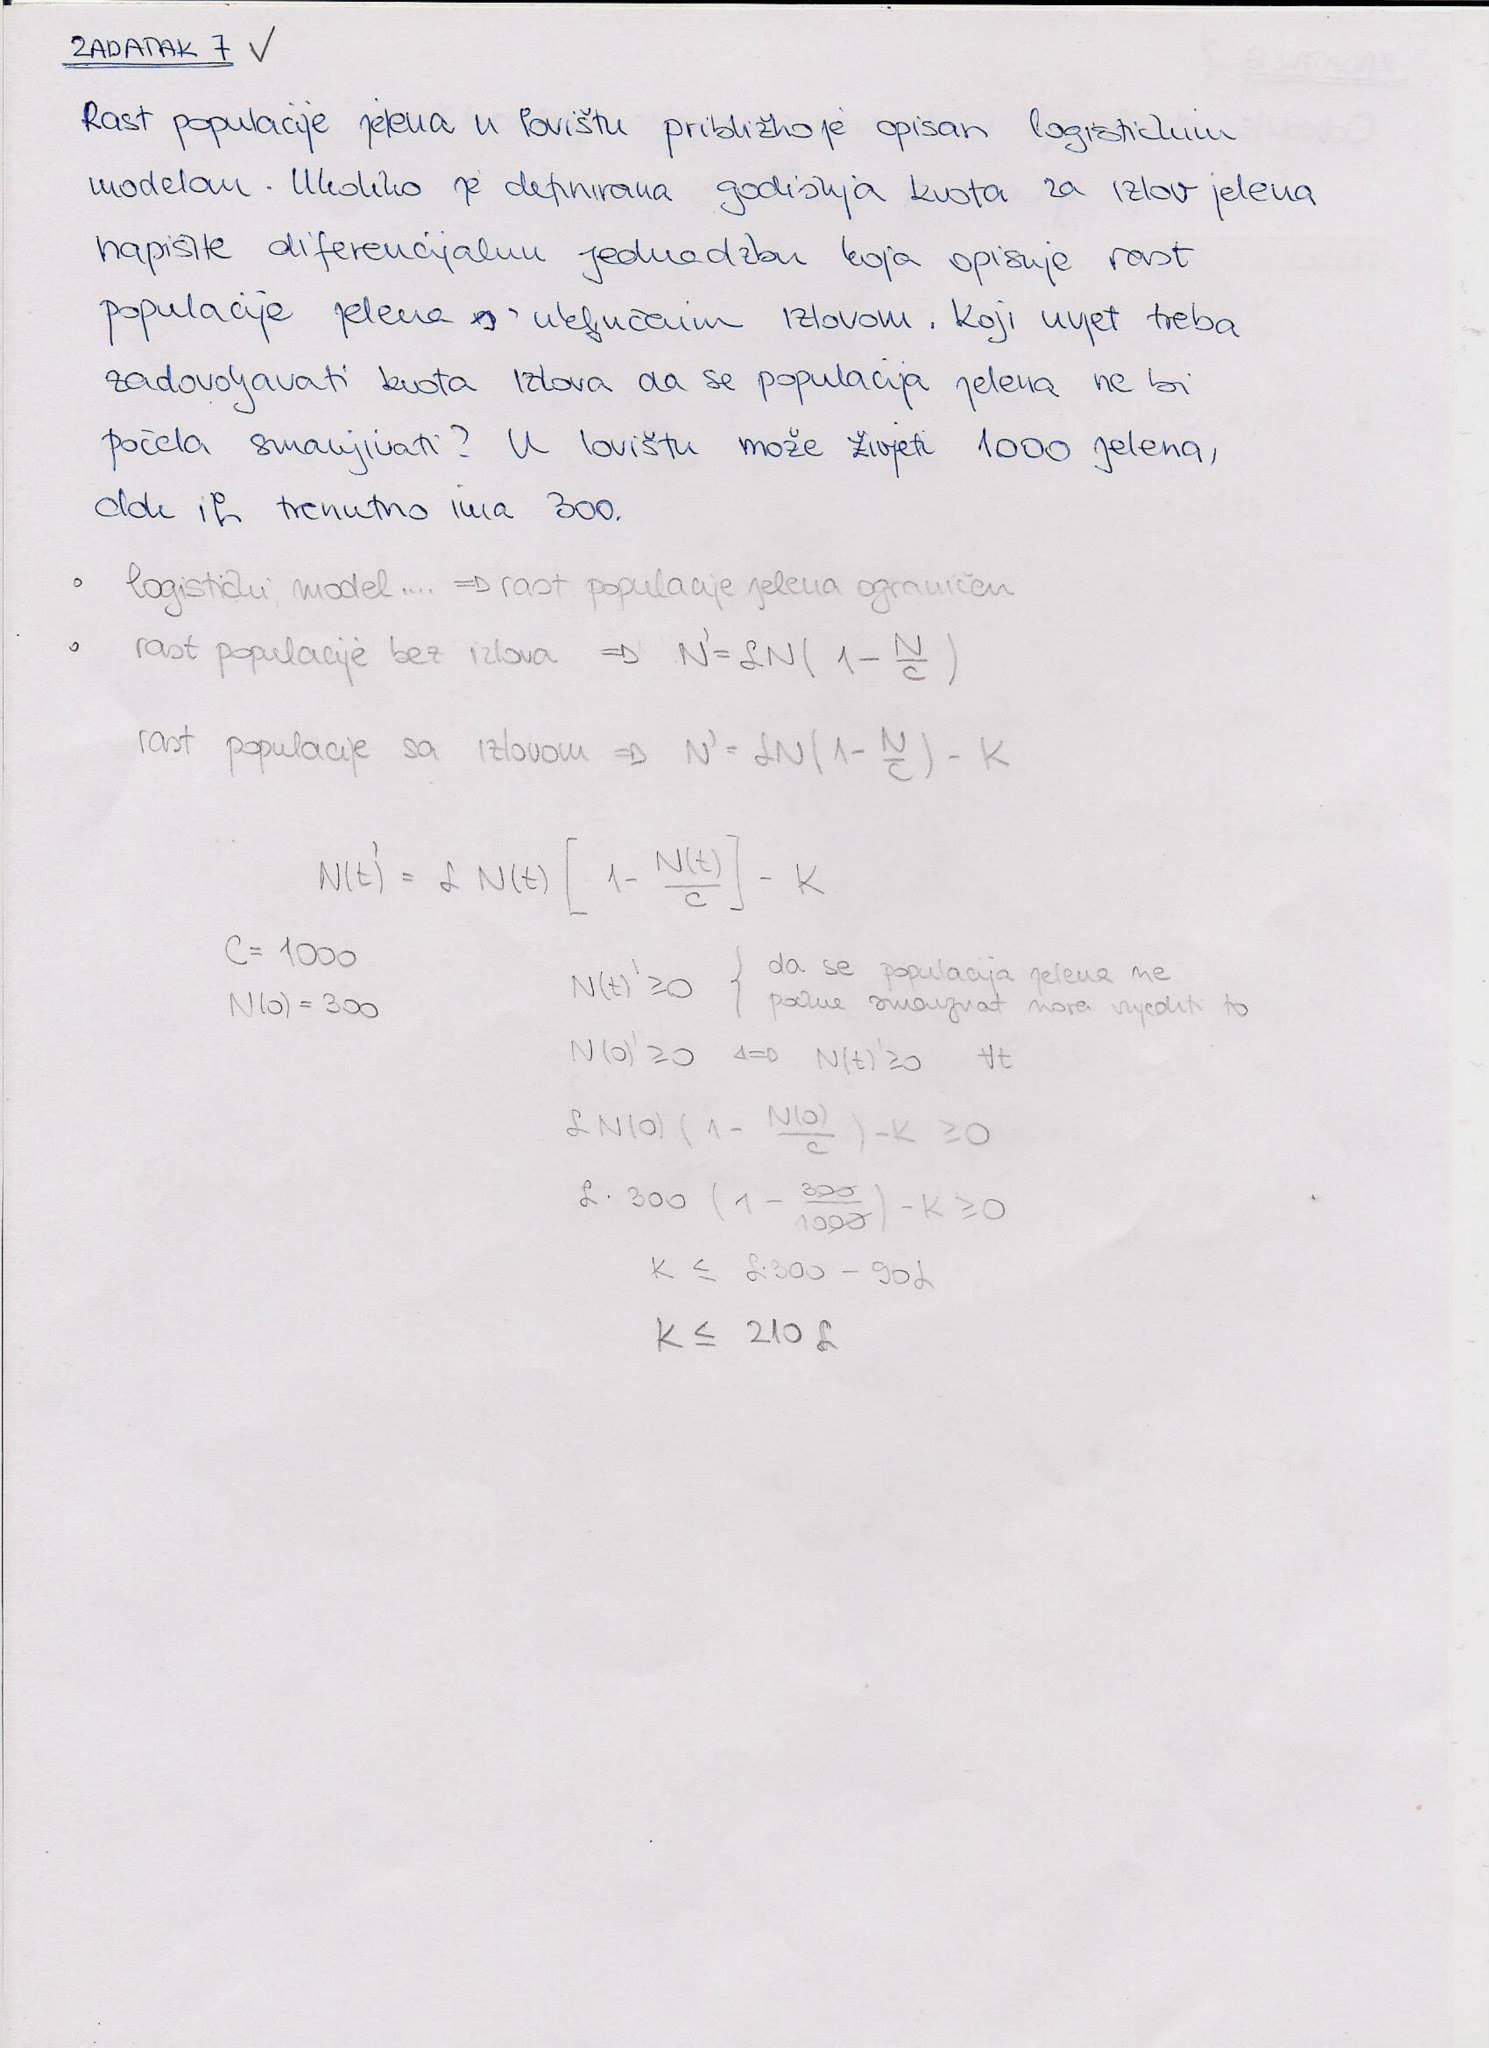 ZADATAK 7 ✓
Rast populacije jelena u lovištu približno je opisan logističkim
modelom. Ukoliko je definirana godišnja kvota za izlov jelena
napišite diferencijalnu jednadžbu koja opisuje rast
populacije jelena s uključenim izlovom. Koji uvjet treba
zadovoljavati kvota izlova da se populacija jelena ne bi
počela smanjivati? U lovištu može živjeti 1000 jelena,
dok ih trenutno ima 300.
° logistički model.... => rast populacije jelena ograničen
° rast populacije bez izlova => N' = αN( 1 - N/C )
rast populacije sa izlovom => N' = αN( 1 - N/C ) - K
N(t)' = α N(t) [ 1 - N(t)/C ] - K
C = 1000
N(0) = 300
N(t)' ≥ 0 { da se populacija jelena ne
počne smanjivat mora vrijediti to
N(0)' ≥ 0 <=> N(t)' ≥ 0 ∀t
α N(0) ( 1 - N(0)/C ) - K ≥ 0
α · 300 ( 1 - 300/1000 ) - K ≥ 0
K ≤ α·300 - 90α
K ≤ 210 α